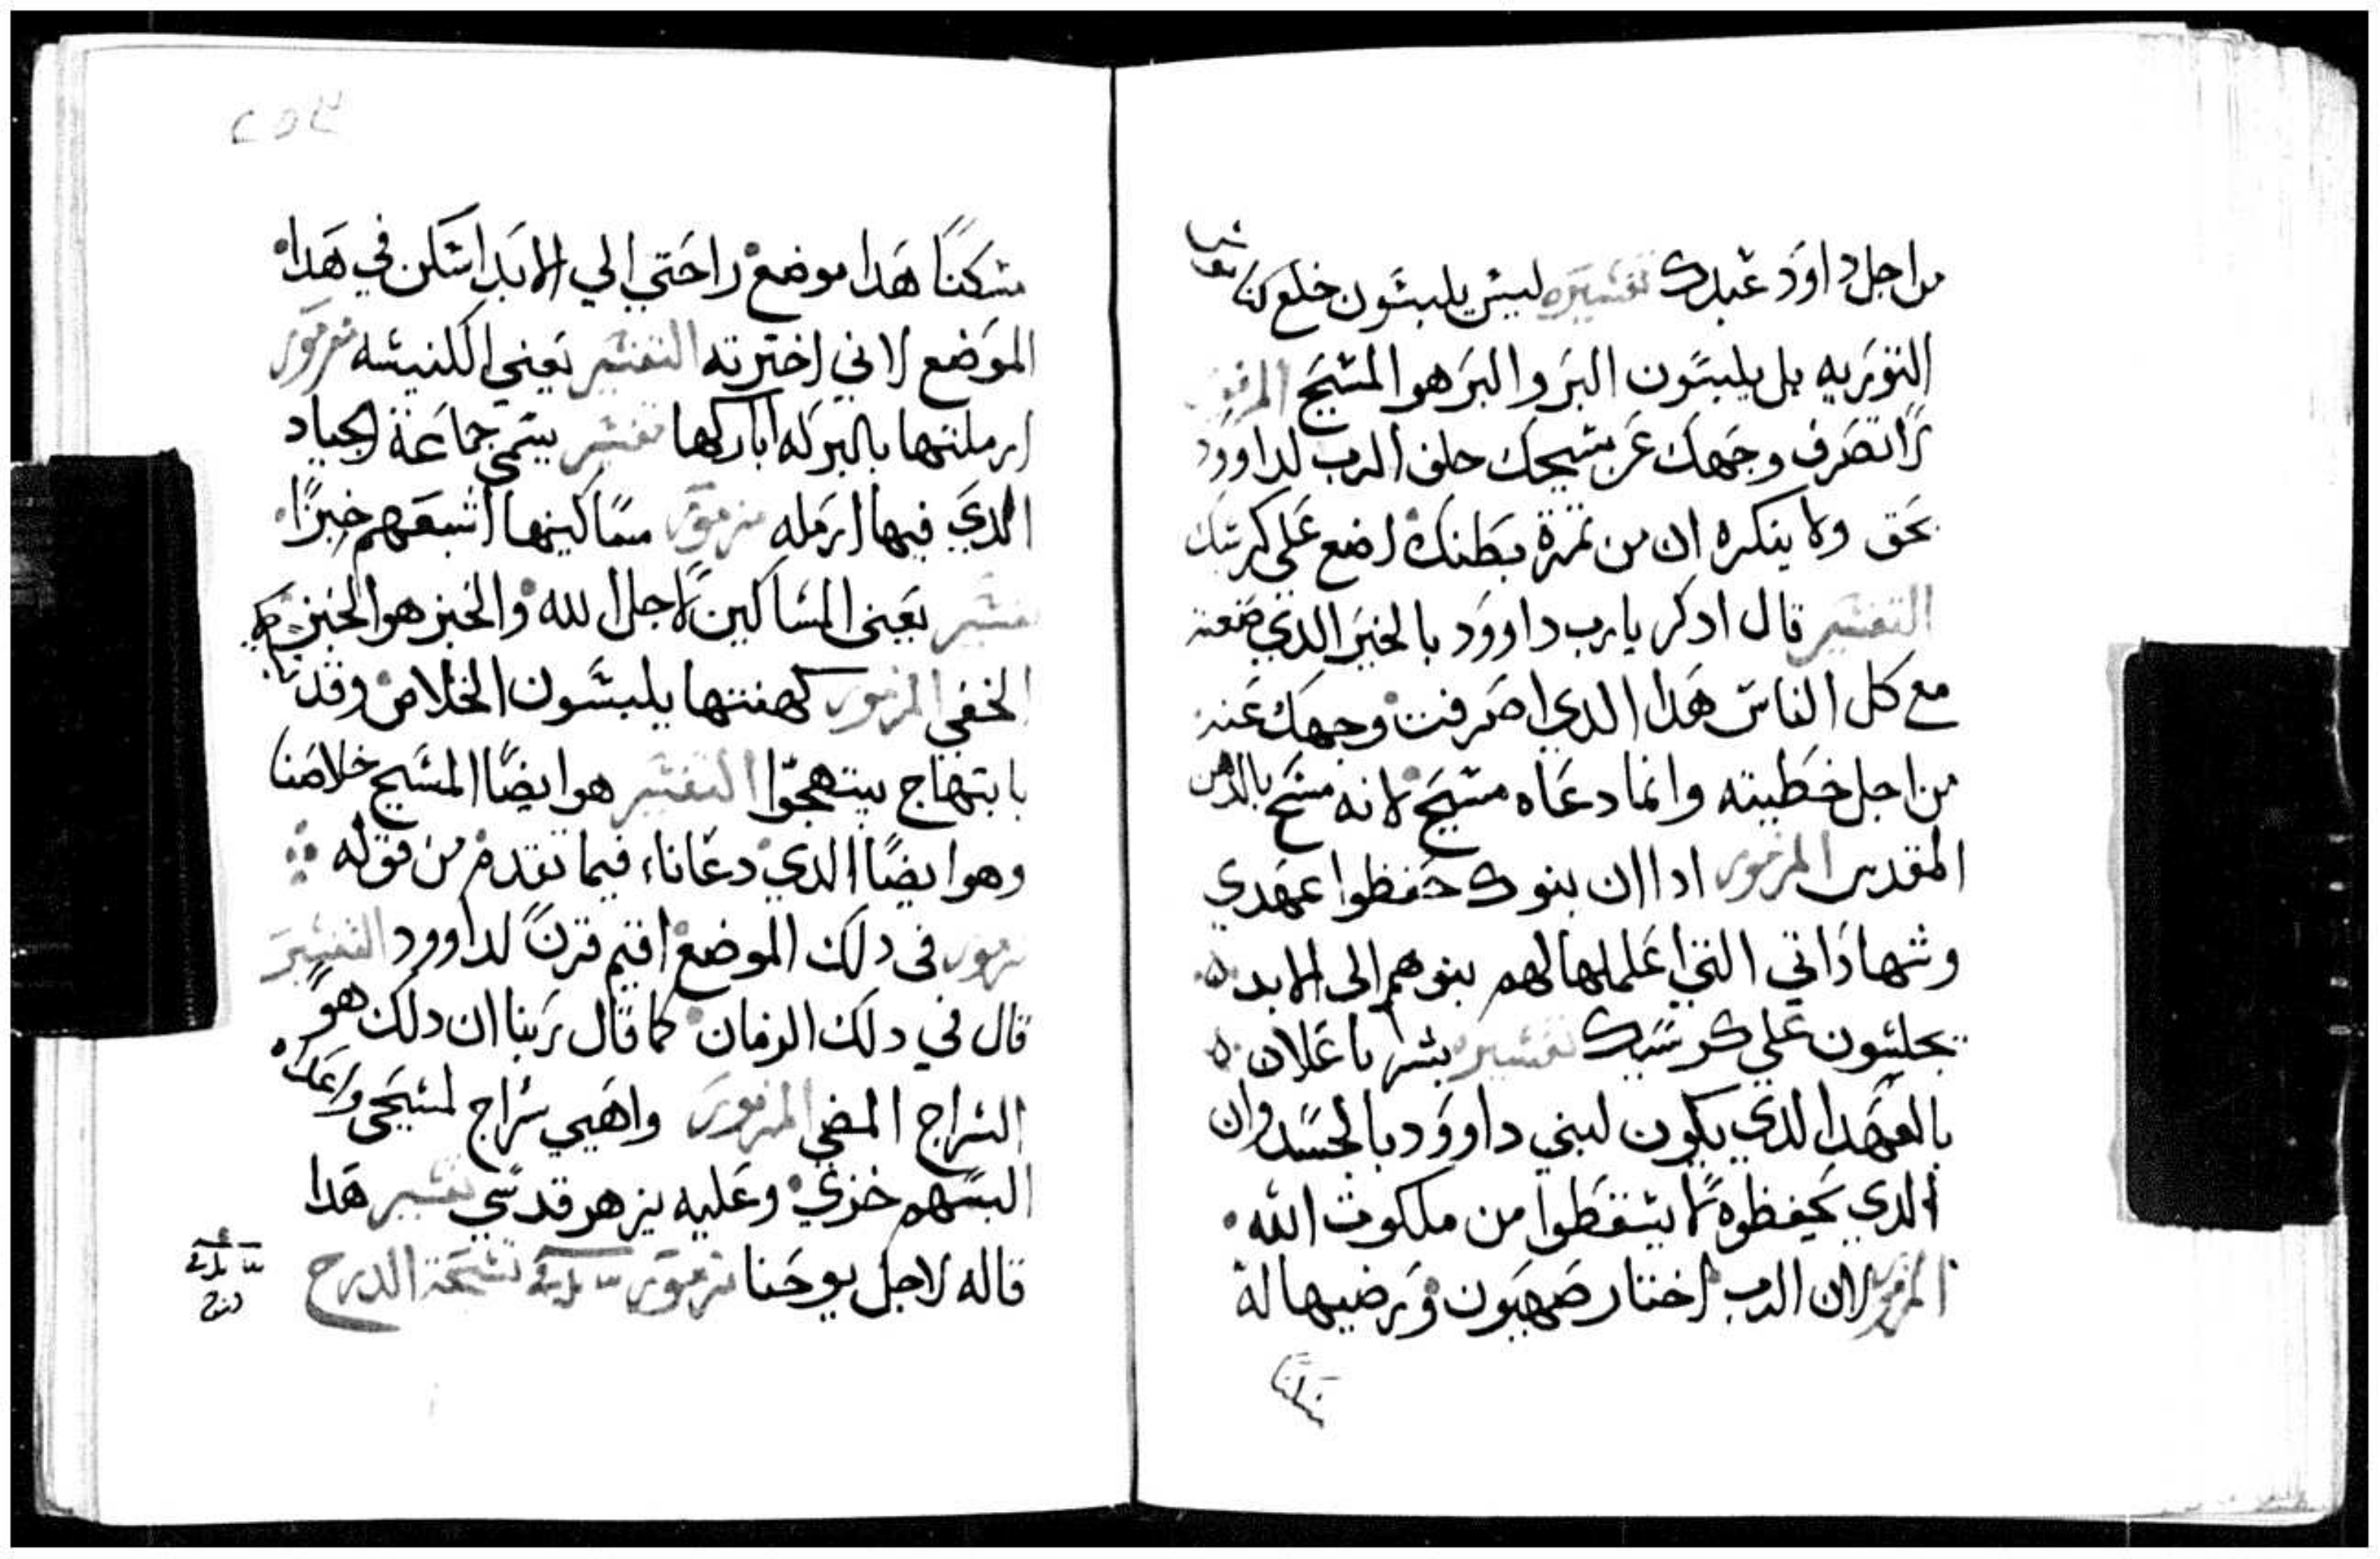 من اجل داوود عبدك تفسيره ليس يلبسون خلع كما
التوريه بل يلبسون البر والبر هو المسيح المزمور
لا تصرف وجهك عن مسيحك حلف الرب لداوود
بحق ولا ينكره ان من تمرة بطنك اضع على كرسيك
التفسير قال ادكر يارب داوود بالخير الدي صنعته
مع كل الناس هدا الدي اصرفت وجهك عنه
من اجل خطيته وانما دعاه مسيح لانه مسح بالدهن
المقدس المزمور ادا ان بنوك حفظوا عهدي
وشهاداتي التي اعلمها لهم بنوهم الى الابد
يجلسون علي كرسيك تفسيره بشرنا علان
بالعهد الدي يكون لبني داوود بالجسد وان
الدي يحفظوه لا يسقطوا من ملكوت الله
المزمور لان الرب اختار صهيون ورضيها له
مسكنا
٢٥٤
مسكنا هدا موضع راحتي الي الابد اسكن في هدا
الموضع لاني اخترته التفسير يعني الكنيسه مزمور
ارملتها بالبركه اباركها تفسير يسمي جماعة الجياد
الدي فيها ارمله مزمور مساكينها اشبعهم خبزا
تفسير يعني المساكين لاجل الله والخبز هو الخبز
الخفي المزمور كهنتها يلبسون الخلاص وقديسيها
بابتهاج يبتهجوا التفسير هو ايضا المسيح خلاصنا
وهو ايضا الدي دعانا فيما تقدم من قوله
مزمور في دلك الموضع اقيم قرن لداوود التفسير
قال في دلك الزمان كما قال ربنا ان دلك هو
السراج المضي المزمور واهيي سراج لمسيحي واعداه
البسهم خزي وعليه يزهر قدسي تفسير هدا
قاله لاجل يوحنا مزمور تسبحة الدرج